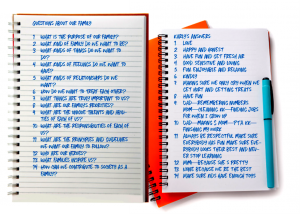 QUESTIONS ABOUT OUR FAMILY
1 WHAT IS THE PURPOSE OF OUR FAMILY?
2 WHAT KIND OF FAMILY DO WE WANT TO BE?
3 WHAT KINDS OF THINGS DO WE WANT TO DO?
4 WHAT KINDS OF FEELINGS DO WE WANT TO HAVE?
5 WHAT KINDS OF RELATIONSHIPS DO WE WANT?
6 HOW DO WE WANT TO TREAT EACH OTHER?
7 WHAT THINGS ARE TRULY IMPORTANT TO US?
8 WHAT ARE OUR FAMILIES PRIORITIES?
9 WHAT ARE THE UNIQUE TALENTS AND ABILITIES OF EACH OF US?
10 WHAT ARE THE RESPONSIBILITIES OF EACH OF US?
11 WHAT ARE THE PRINCIPLES AND GUIDELINES WE WANT OUR FAMILY TO FOLLOW?
12 WHO ARE OUR HEROES?
13 WHAT FAMILIES INSPIRE US?
14 HOW CAN WE CONTRIBUTE TO SOCIETY AS A FAMILY?
ANSWERS
1 LOVE
2 HAPPY AND HONEST
3 HAVE FUN AND GET FRESH AIR
4 GOOD, SENSITIVE AND
5 FUN, ENJOYABLE AND
6 KINDLY
7 MAKING SURE WE ONLY CRY WHEN WE GET HURT AND GETTING TREATS
8 HAVE FUN
9 DAD - REMEMBERING NUMBERS
MOM - CLEANING
10 DAD -
MOM -
FINDING MY
11 ALWAYS BE RESPECTFUL, MAKE SURE EVERYBODY HAS FUN, MAKE SURE EVERYBODY DOES THEIR BEST AND NEVER STOP LEARNING
12 MOM - BECAUSE SHE'S PRETTY
13 NONE BECAUSE WE ARE THE BEST
14 MAKE SURE KIDS HAVE ENOUGH TOYS